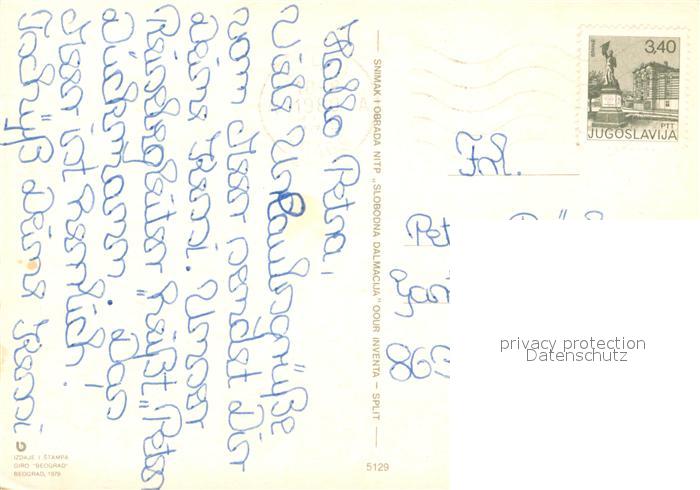 Hallo Petra,
Viele Urlaubsgrüße
vom Meer sendet Dir
Deine Henni. Unser
Reisebegleiter heißt "Peter
Dickmann". Das
Meer ist herrlich!
Tschüß Deine Henni
IZDAJE I ŠTAMPA
GIRO "BEOGRAD"
BEOGRAD, 1979
SNIMAK I OBRADA NITP „SLOBODNA DALMACIJA" OOUR INVENTA — SPLIT
5129
3,40
PTT
JUGOSLAVIJA
Frl.
privacy protection
Datenschutz